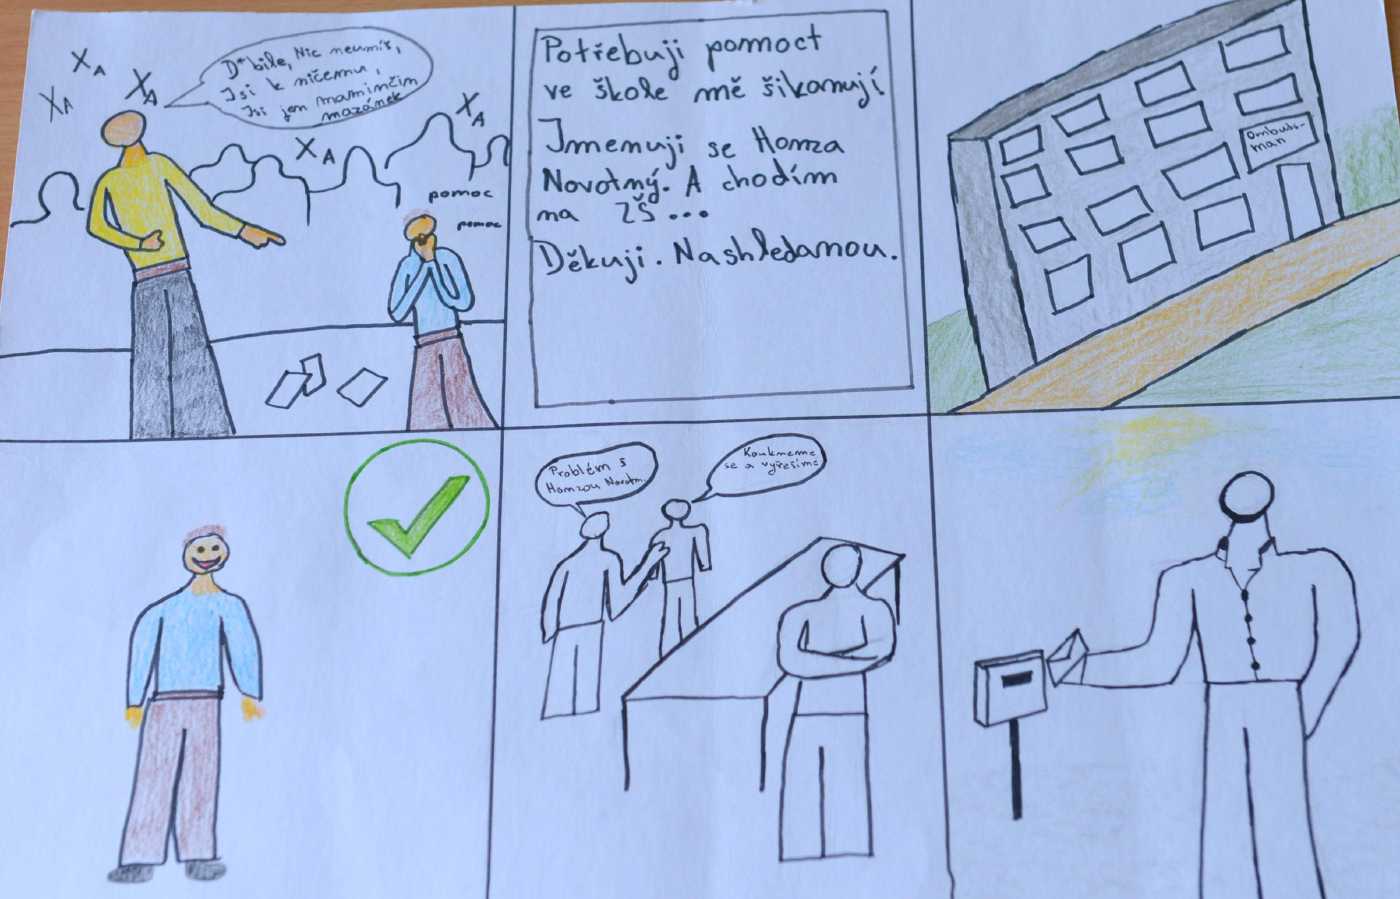 XA
XA
XA
XA
XA
D*bile, Nic neumíš,
Jsi k ničemu,
Jsi jen maminčin
mazánek
pomoc
pomoc
Potřebuji pomoct
ve škole mě šikanují
Jmenuji se Honza
Novotný. A chodím
na ZŠ...
Děkuji. Nashledanou.
ombuds-
man
Problém s
Honzou Novotn.
Koukneme
se a vyřešíme